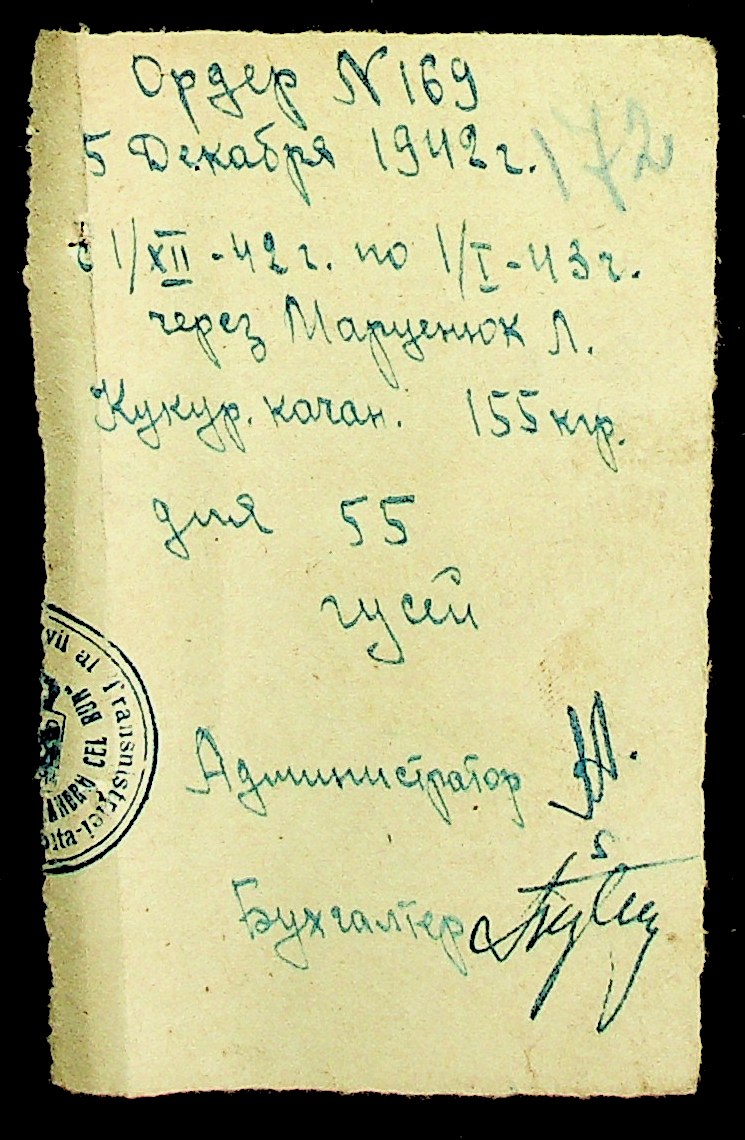 Ордер N 169
172
5 Декабря 1942 г.
с 1/XII - 42 г. по 1/I - 43 г.
через Марценюк Л.
Кукур. качан. 155 кгр.
для 55
гусей
vil al Transnistriei
CEL BUN"
Администратор
Бухгалтер